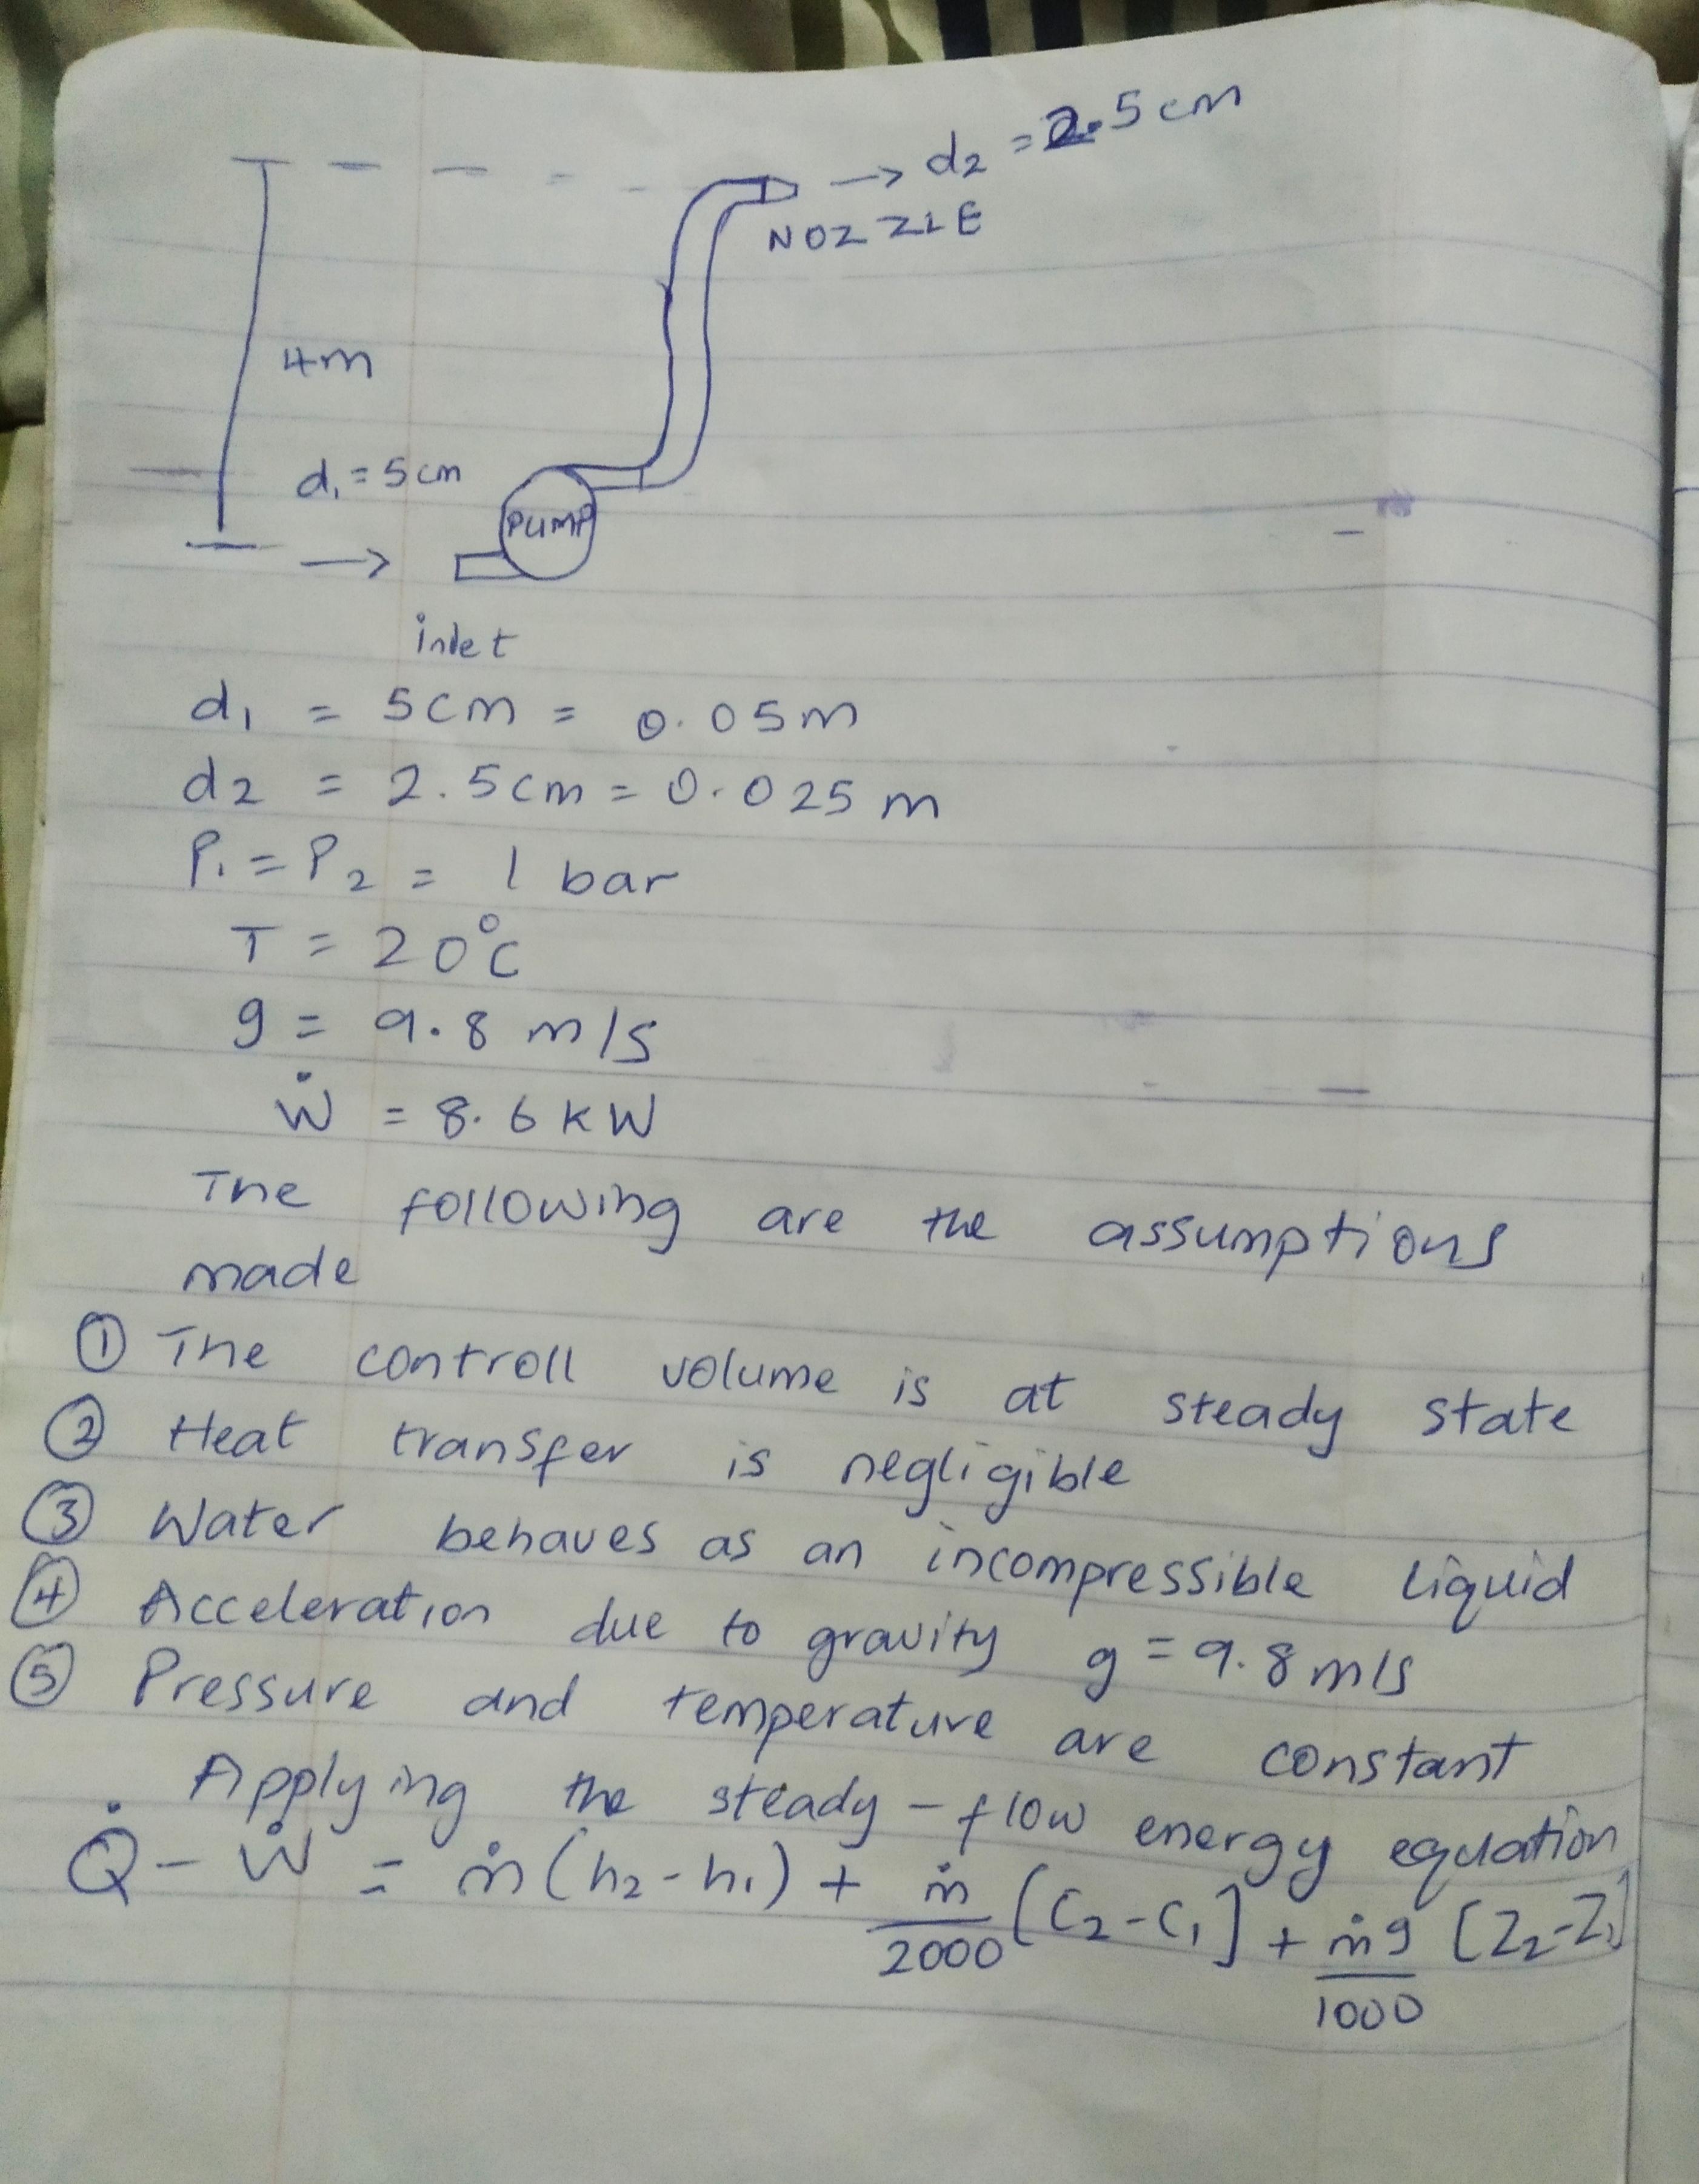 → d₂ = 2.5 cm
NOZZLE
4m
d₁ = 5 cm
PUMP
→
inlet
d₁ = 5cm = 0.05m
d₂ = 2.5cm = 0.025 m
P₁ = P₂ = 1 bar
T = 20°C
g = 9.8 m/s
Ẇ = 8.6 KW
The following are the assumptions
made
① The controll volume is at steady state
② Heat transfer is negligible
③ Water behaves as an incompressible liquid
④ Acceleration due to gravity g = 9.8 m/s
⑤ Pressure and temperature are constant
Applying the steady - flow energy equation
Q̇ - Ẇ = ṁ(h₂-h₁) + ṁ/2000 [C₂-C₁] + ṁg/1000 [Z₂-Z₁]